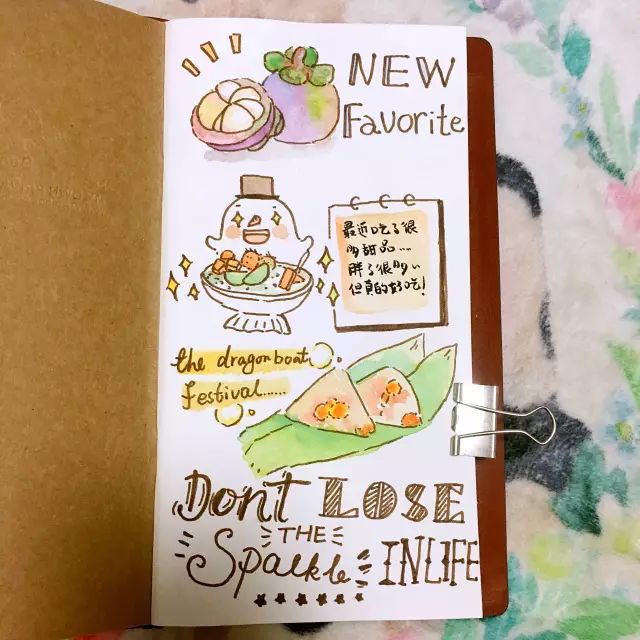 NEW
Favorite
最近吃了很
多甜品....
胖了很多..
但真的好吃!
the dragon boat
festival......
Dont LOSE
THE
Sparkle INLIFE